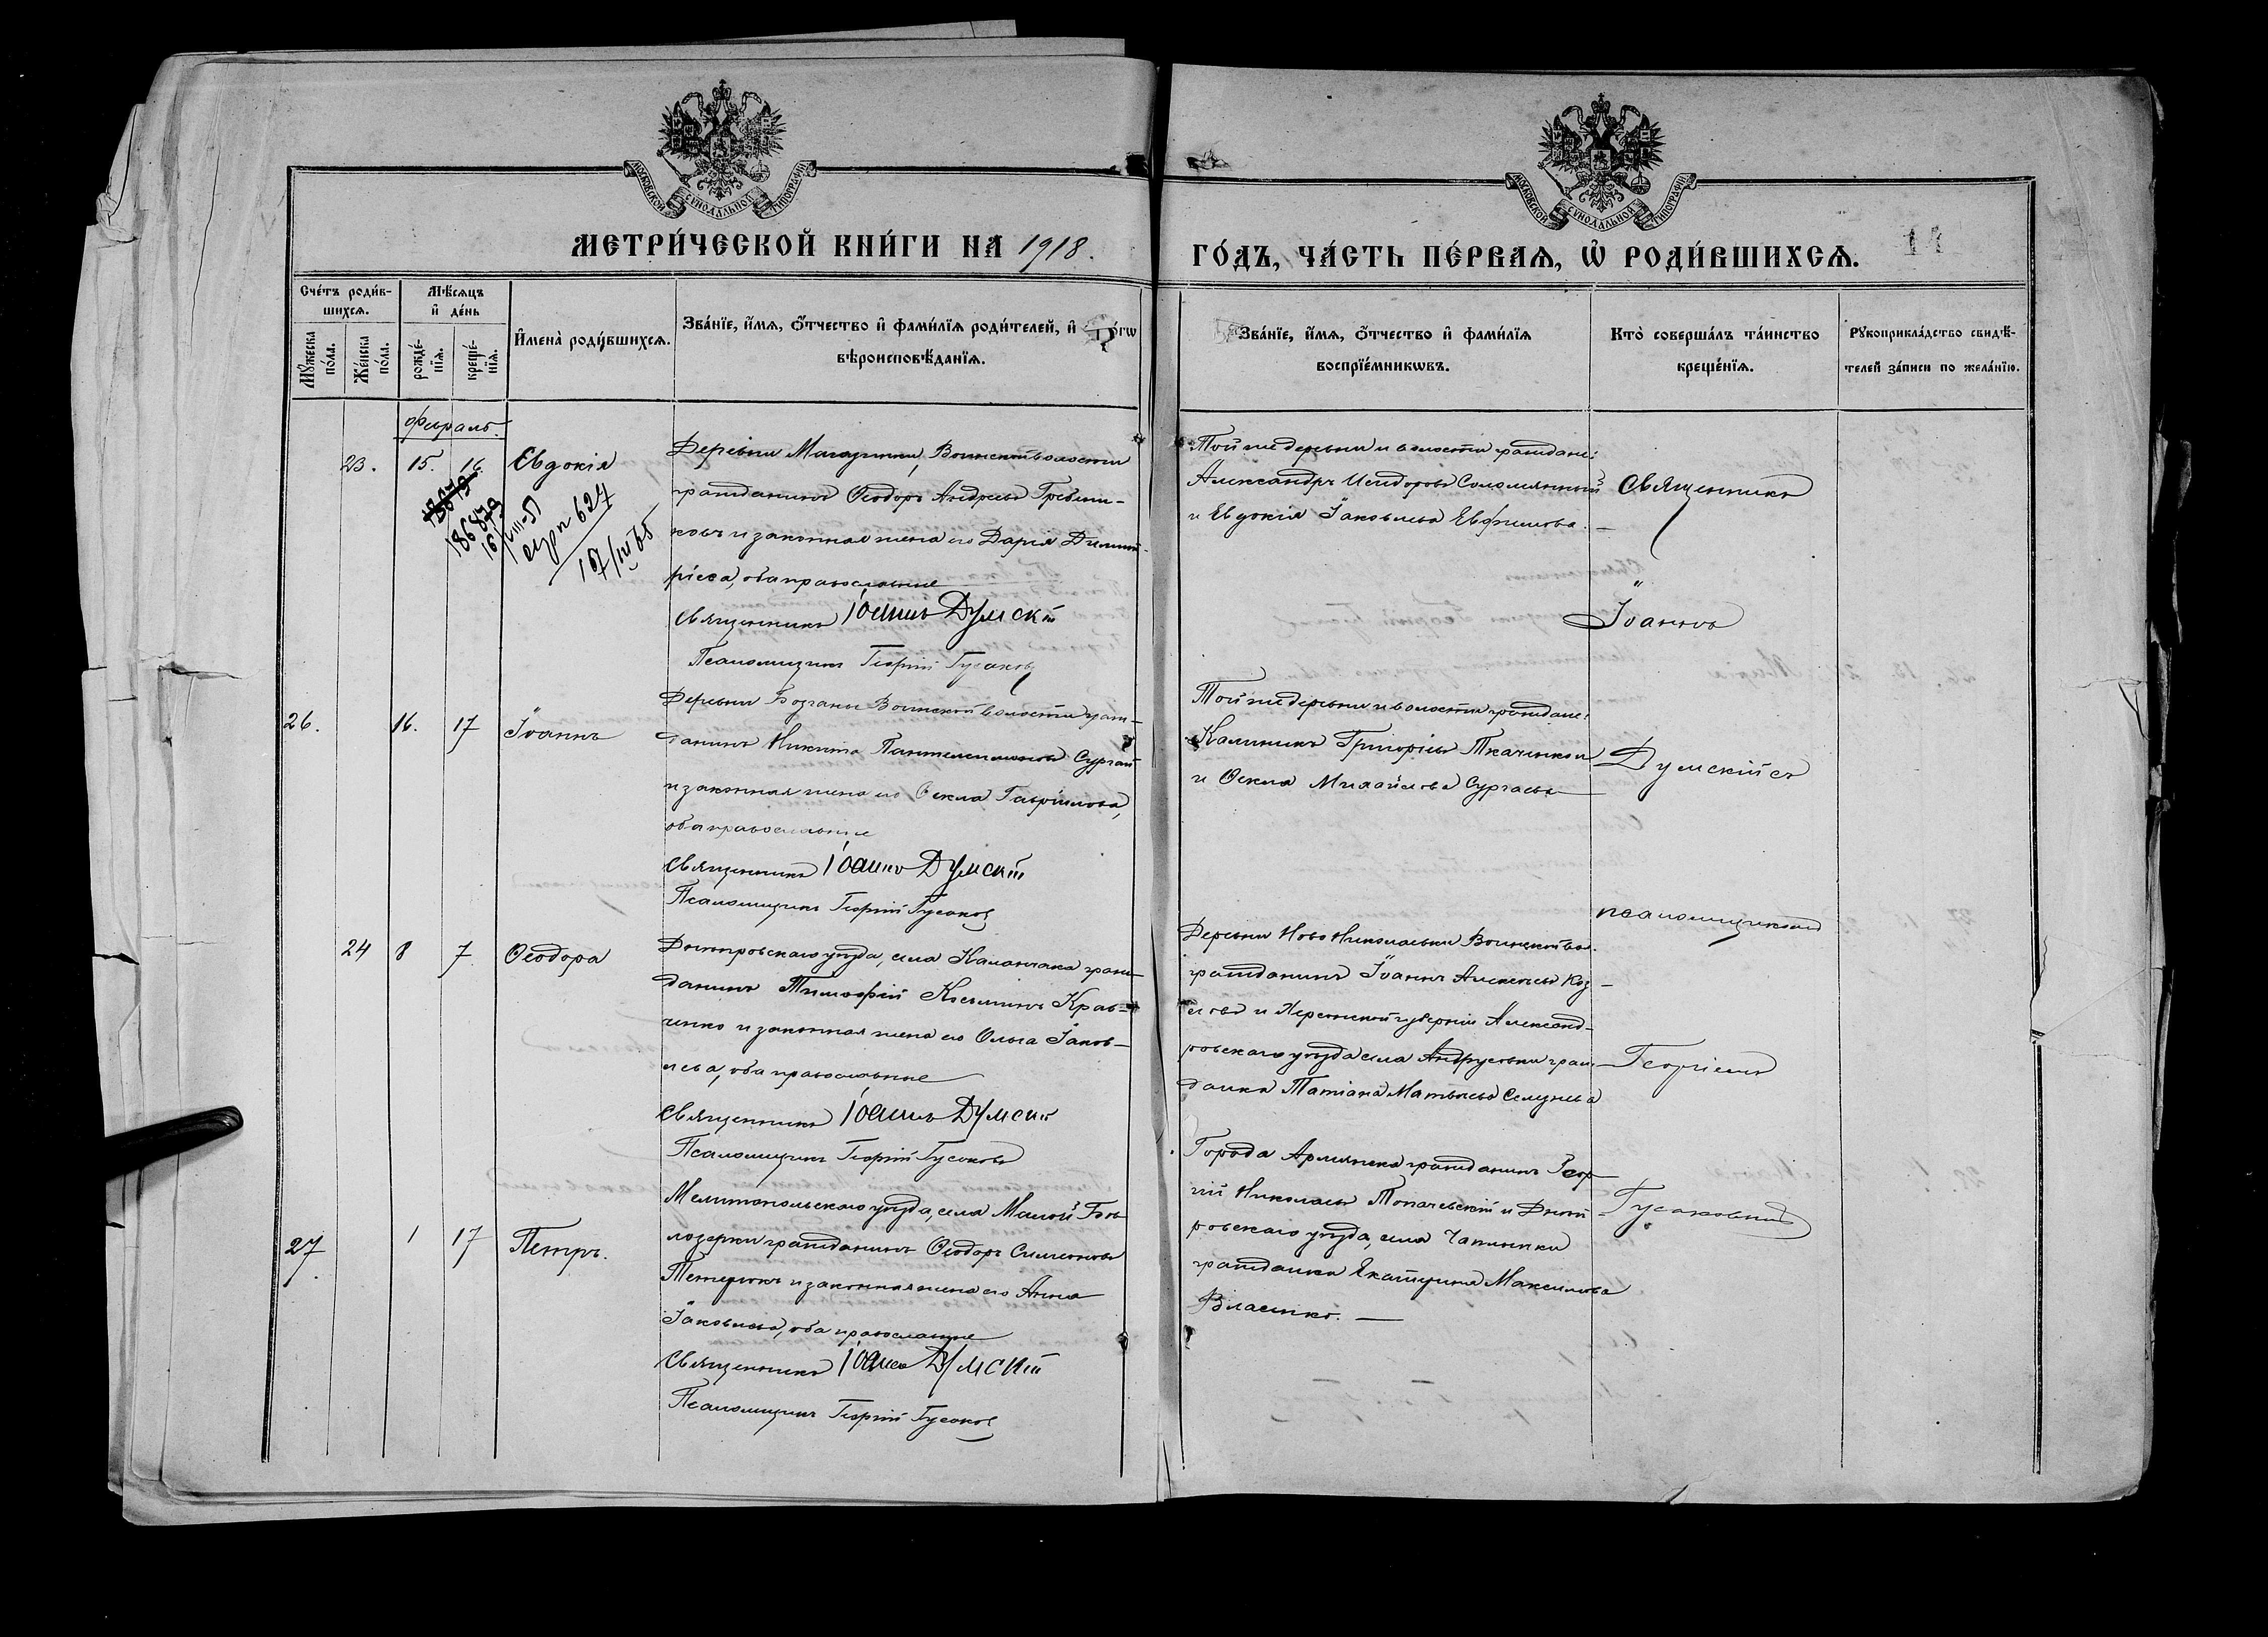 МОСКОВСКОЙ СѴНОДАЛЬНОЙ ТИПОГРАФІИ
МОСКОВСКОЙ СѴНОДАЛЬНОЙ ТИПОГРАФІИ
МЕТРИ́ЧЕСКОЙ КНИ́ГИ НА 1918.
ГО́ДЪ, ЧА́СТЬ ПЕ́РВАѦ, Ѡ҆ РОДИ́ВШИХСѦ.
Сче́тъ роди́в-
шихсѧ.
Мѣ́сѧцъ
и҆ де́нь
Мꙋ́жеска
по́ла.
Же́нска
по́ла.
рожде́-
нїѧ.
креще́-
нїѧ.
И҆мена̀ роди́вшихсѧ.
Зва́нїе, и҆́мѧ, ѻ҆́тчество и҆ фами́лїѧ роди́телей, и҆
вѣроисповѣ́данїѧ.
Зва́нїе, и҆́мѧ, ѻ҆́тчество и҆ фами́лїѧ
воспрїе́мникѡвъ.
Кто̀ соверша́лъ та́инство
креще́нїѧ.
Рꙋкоприкла́дство свидѣ́-
телей за́писи по жела́нїю.
Февраль.
23. 15. 16. Евдокія
18679
16/VIII-51
серп 624
17/IV 65
Деревни Магазинки, Воинской волости
гражданинъ Ѳеодоръ Андреевъ Гребени-
ковъ и законная жена его Дарія Димит-
ріева, оба православные
Священникъ Іоаннъ Думскій
Псаломщикъ Георгій Гусаковъ
Той же деревни и волости граждане:
Александръ Исидоровъ Соломянный
и Евдокія Іаковлева Евфимова. —
Священникъ
Іоаннъ
26. 16. 17 Іоаннъ
Деревни Бозганы Воинской волости граж-
данинъ Никита Пантелеимоновъ Сургай
и законная жена его Ѳекла Гавріилова,
оба православные
Священникъ Іоаннъ Думскій
Псаломщикъ Георгій Гусаковъ
Той же деревни и волости граждане:
Калиникъ Григорьевъ Ткаченков
и Ѳекла Михайлова Сургаева —
Думскій съ
псаломщикомъ
24 8 7 Ѳеодора
Днѣпровскаго уѣзда, села Каланчака граж-
данинъ Тимоѳей Косьминъ Крав-
ченко и законная жена его Ольга Іаков-
лева, оба православные
Священникъ Іоаннъ Думскій
Псаломщикъ Георгій Гусаковъ
Деревни Ново Николаевки Воинской вол.
гражданинъ Іоаннъ Алексѣевъ Коз-
ловъ и Херсонской губерніи Александ-
ровскаго уѣзда села Андрусовки граж-
данка Татіана Матвѣева Селунева
Георгіемъ
27 1 17 Петръ.
Мелитопольскаго уѣзда, села Малой Бѣ-
лозерки гражданинъ Ѳеодоръ Симеоновъ
Петерюкъ и законная жена его Анна
Іаковлева, оба православные
Священникъ Іоаннъ Думскій
Псаломщикъ Георгій Гусаковъ
Города Армянска гражданинъ Геор-
гій Николаевъ Топачевскій и Днѣп-
ровскаго уѣзда, села Чаплинки
гражданка Екатерина Максимова
Власенко. —
Гусаковымъ